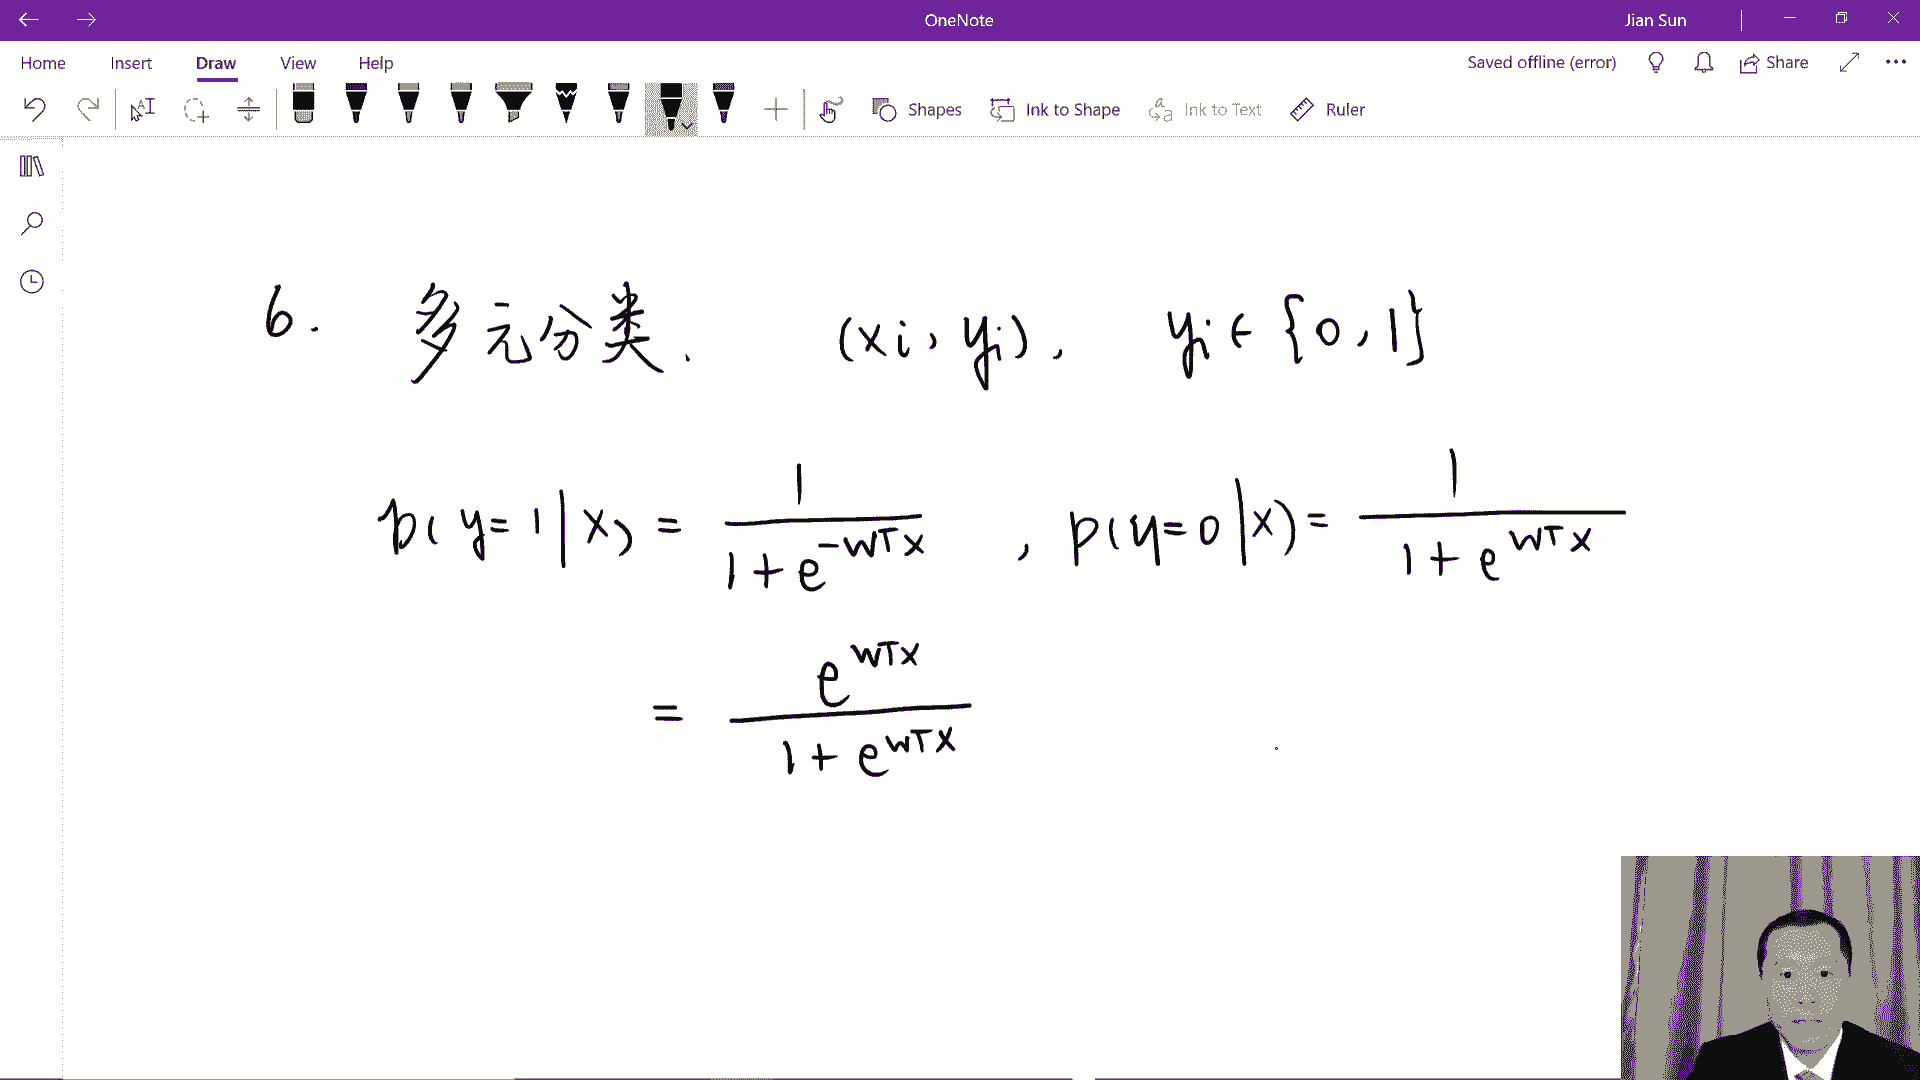 OneNote
Jian Sun
Home Insert Draw View Help
Saved offline (error) Share
Shapes Ink to Shape Ink to Text Ruler
6. 多元分类. (xi, yi), yi ∈ {0, 1}
p(y=1|x) = 1/(1+e^{-wTx}), p(y=0|x) = 1/(1+e^{wTx})
= e^{wTx}/(1+e^{wTx})